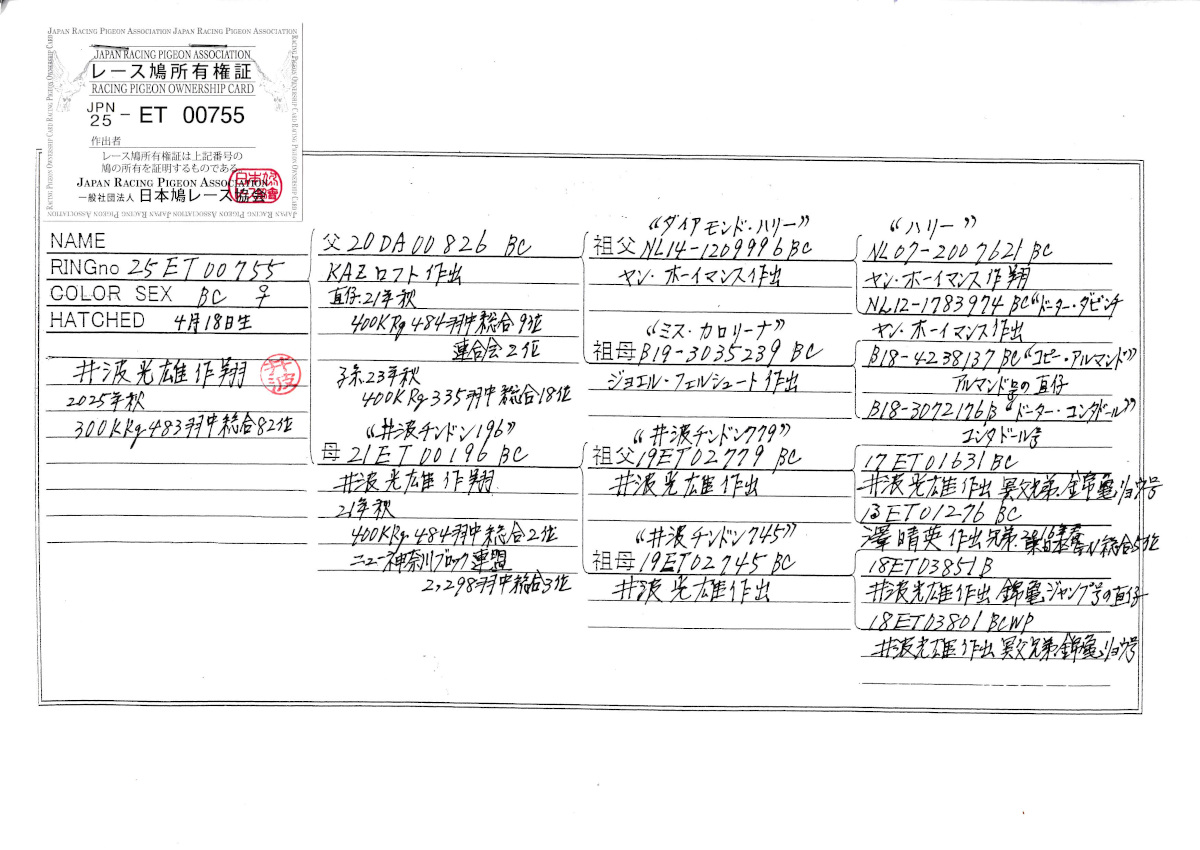 JAPAN RACING PIGEON ASSOCIATION JAPAN RACING PIGEON ASSOCIATION
JAPAN RACING PIGEON ASSOCIATION
レース鳩所有権証
RACING PIGEON OWNERSHIP CARD
JPN
25 - ET 00755
作出者
レース鳩所有権証は上記番号の
鳩の所有を証明するものである。
JAPAN RACING PIGEON ASSOCIATION
一般社団法人 日本鳩レース協会
NAME
RINGno 25ET00755
COLOR SEX BC ♀
HATCHED 4月18日生
井波光雄作翔
井波
2025年秋
300KRg 483羽中総合82位
父 20DA00826 BC
KAZロフト作出
直仔.21年秋
400KRg 484羽中総合9位
連合会2位
孫.23年秋
400KRg 335羽中総合18位
“井波チンドン196”
母 21ET00196 BC
井波光雄作翔
21年秋
400KRg 484羽中総合2位
ニュー神奈川ブロック連盟
2,298羽中総合3位
“ダイアモンド・ハリー”
祖父 NL14-1209996 BC
ヤン・ホーイマンス作出
“ミス・カロリーナ”
祖母 B19-3035239 BC
ジョエル・フェルシュート作出
“井波チンドン779”
祖父 19ET02779 BC
井波光雄作出
“井波チンドン745”
祖母 19ET02745 BC
井波光雄作出
“ハリー”
NL07-2007621 BC
ヤン・ホーイマンス作翔
NL12-1783974 BC “ドーター・ダビンチ
ヤン・ホーイマンス作出
B18-4238137 BC “コピー・アルマンド”
アルマンド号の直仔
B18-3072176 B “ドーター・コンタドール”
コンタドール号
17ET01631 BC
井波光雄作出 異父兄弟.金錦亀リョウ号
13ET01276 BC
澤晴英作出 兄弟. N総合5位
18ET03851 B
井波光雄作出 錦亀ジャンプ号の直仔
18ET03801 BCWP
井波光雄作出 異父兄弟.錦亀リョウ号